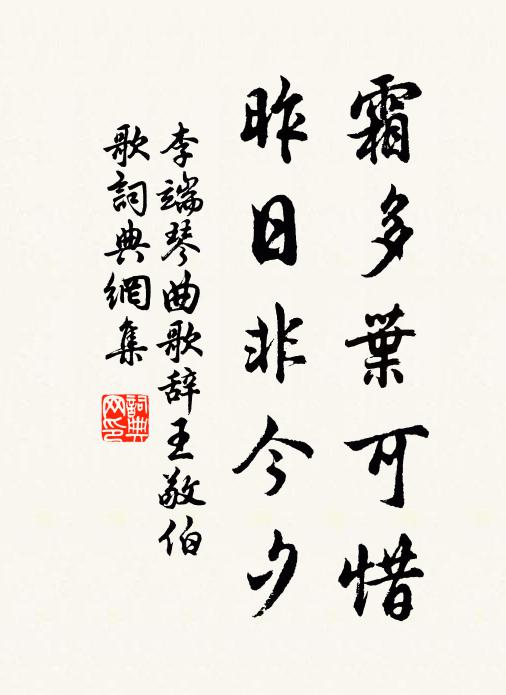 霜多葉可惜
昨日非今夕
李端琴曲歌辞王敬伯
歌詞典網集
詞典网印